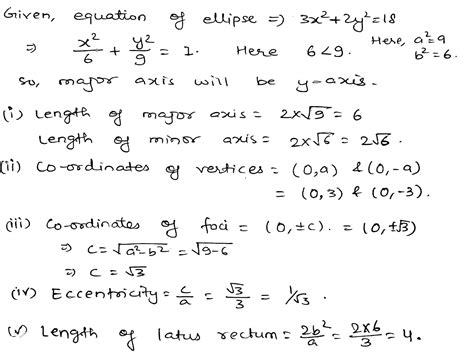 Given, equation of ellipse => 3x²+2y²=18
=> x²/6 + y²/9 = 1. Here 6<9. Here, a²=9
b²=6.
so, major axis will be y-axis.
(i) Length of major axis = 2×√9 = 6
Length of minor axis = 2×√6 = 2√6.
(ii) Co-ordinates of vertices = (0,a) & (0,-a)
= (0,3) & (0,-3).
(iii) Co-ordinates of foci = (0,±c). = (0,±√3)
=> c = √a²-b² = √9-6
=> c = √3
(iv) Eccentricity = c/a = √3/3 = 1/√3.
(v) Length of latus rectum = 2b²/a = 2×6/3 = 4.